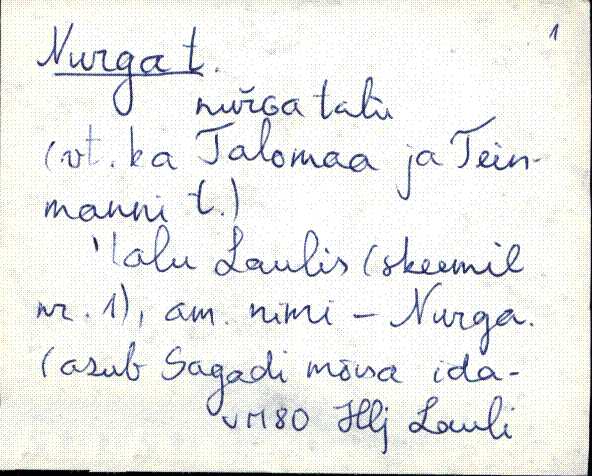 1
Nurga t.
nuŕGa talù
(vt. ka Talomaa ja Tein-
manni t.)
'talu Laulis (skeemil
nr. 1), am. nimi – Nurga.
(asub Sagadi mõisa ida-
VM80 Hlj Lauli